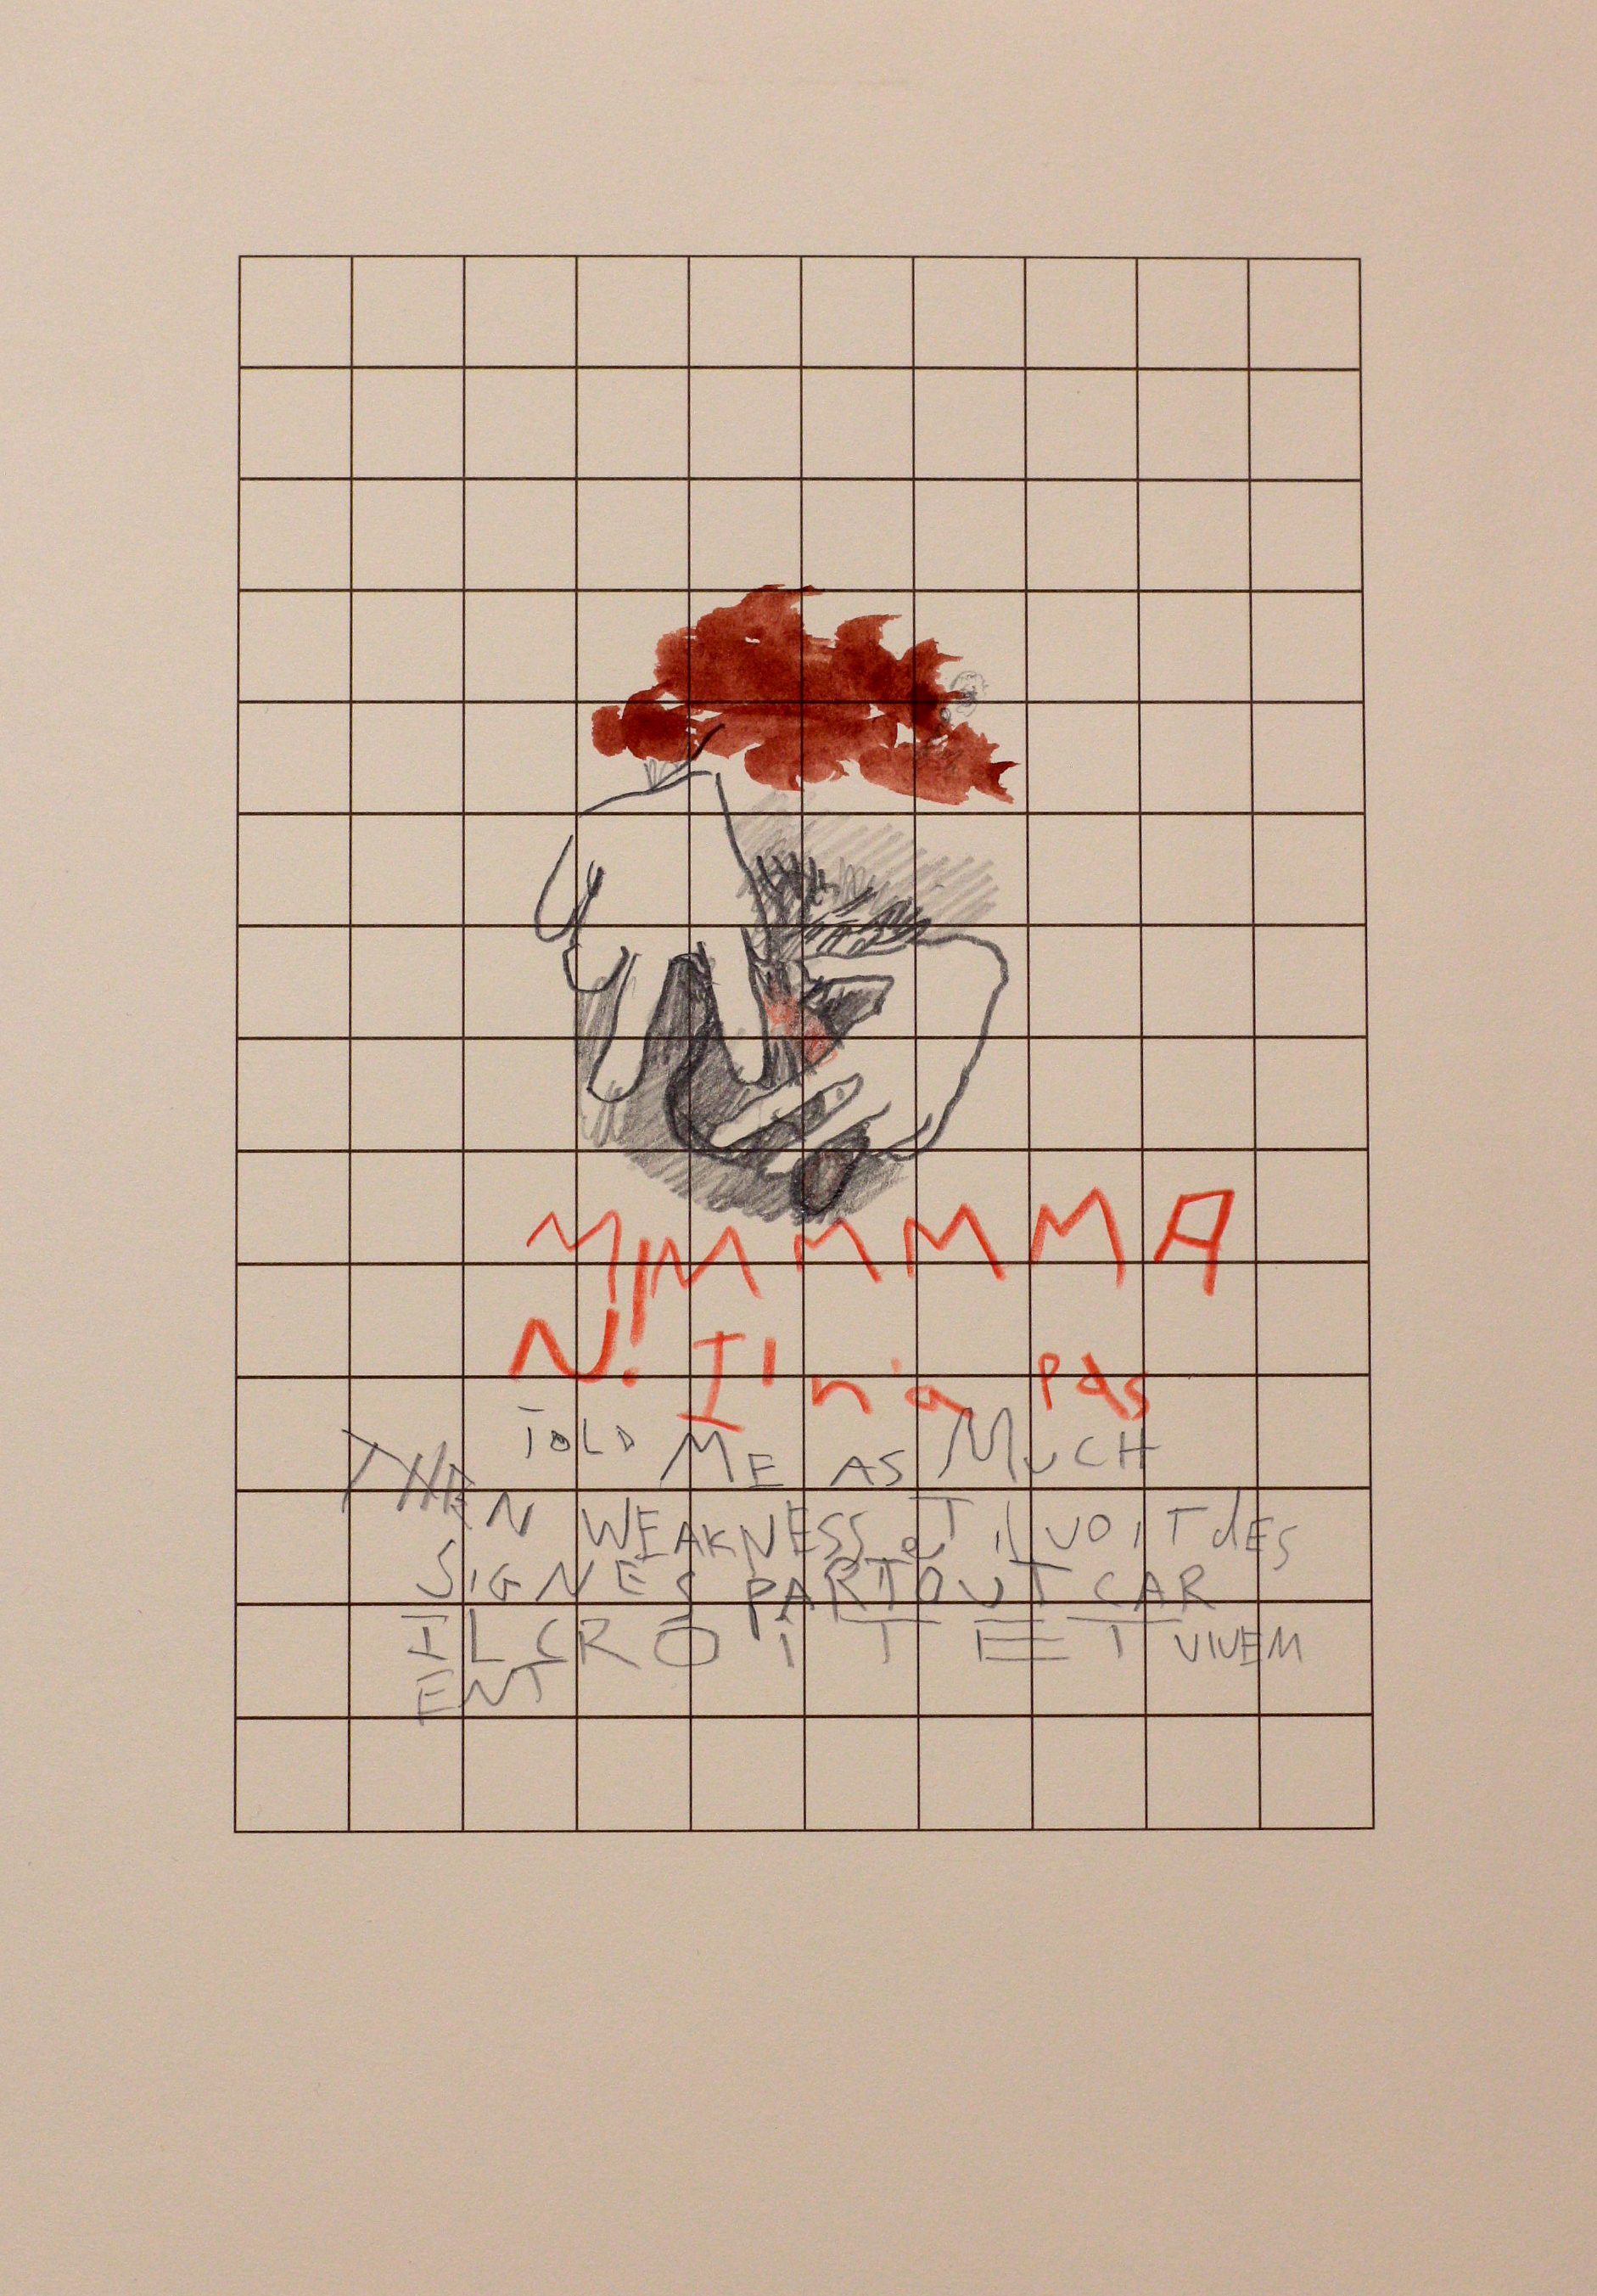 M!MMMMMA
N! Il n'a pas
TOLD ME AS MUCH
THEN WEAKNESS eT il VOIT dES
SIGNES PARTOUT CAR
IL CROIT ET VIVEM
ENT